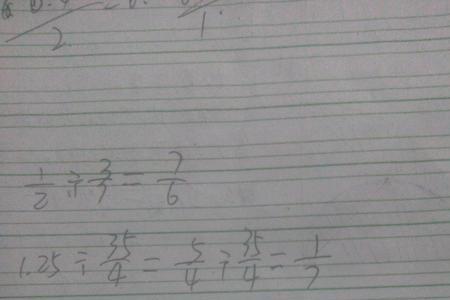 2
1
1/2 ÷ 3/7 = 7/6
1.25 ÷ 35/4 = 5/4 ÷ 35/4 = 1/7